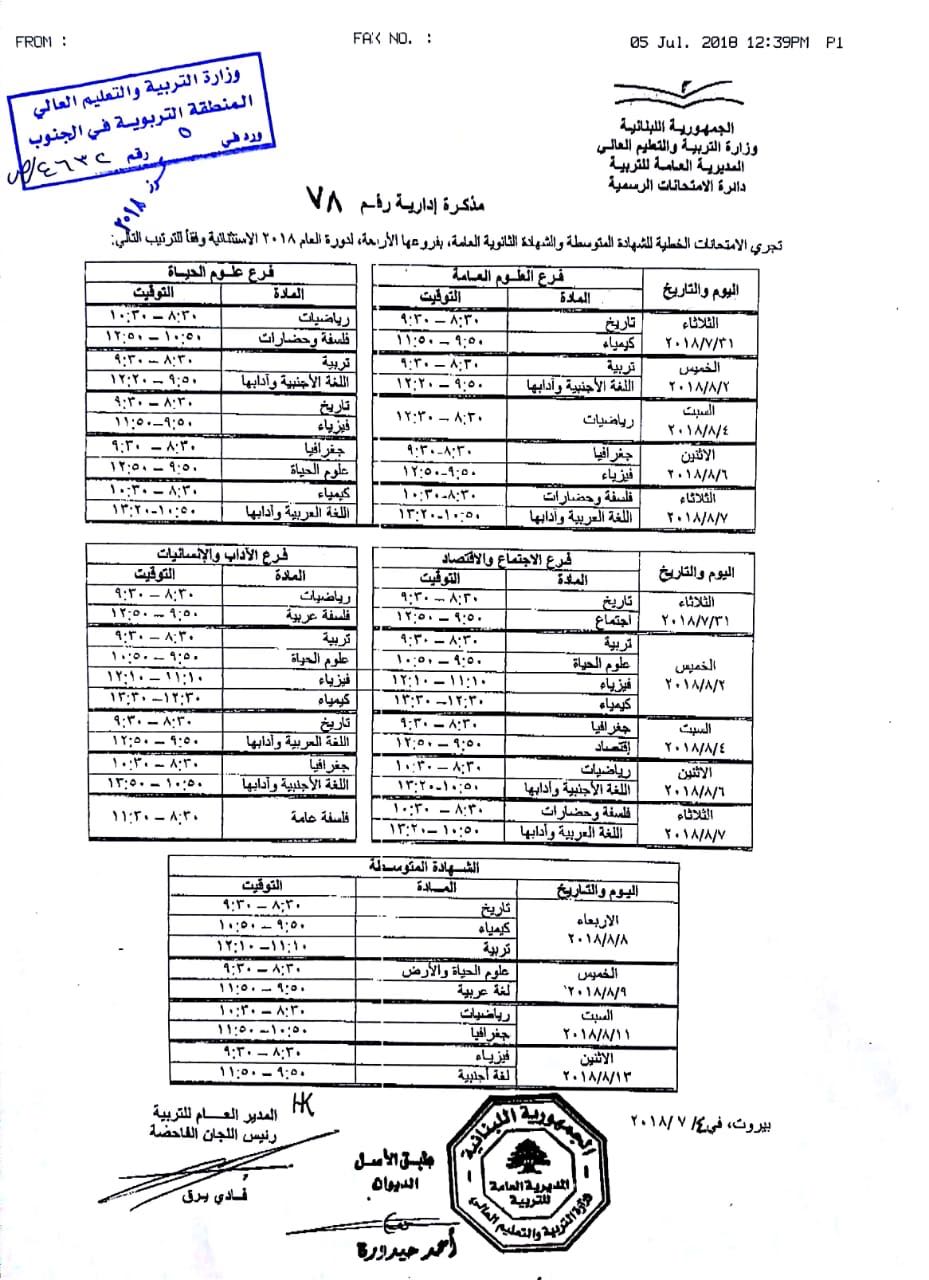 FROM :
FAX NO. :
05 Jul. 2018 12:39PM P1
وزارة التربية والتعليم العالي
المنطقة التربوية في الجنوب
ورد في ٥
رقم ٤٦٣٢/ص
تموز ٢٠١٨
الجمهورية اللبنانية
وزارة التربية والتعليم العالي
المديرية العامة للتربية
دائرة الامتحانات الرسمية
مذكرة إدارية رقم ٧٨
تجري الامتحانات الخطية للشهادة المتوسطة والشهادة الثانوية العامة، بفروعها الأربعة، لدورة العام ٢٠١٨ الاستثنائية وفقاً للترتيب التالي:
اليوم والتاريخ فرع العلوم العامة فرع علوم الحياة
المادة التوقيت المادة التوقيت
الثلاثاء تاريخ ٨:٣٠ – ٩:٣٠ رياضيات ٨:٣٠ – ١٠:٣٠
٢٠١٨/٧/٣١ كيمياء ٩:٥٠ – ١١:٥٠ فلسفة وحضارات ١٠:٥٠ – ١٢:٥٠
الخميس تربية ٨:٣٠ – ٩:٣٠ تربية ٨:٣٠ – ٩:٣٠
٢٠١٨/٨/٢ اللغة الأجنبية وآدابها ٩:٥٠ – ١٢:٢٠ اللغة الأجنبية وآدابها ٩:٥٠ – ١٢:٢٠
السبت رياضيات ٨:٣٠ – ١٢:٣٠ تاريخ ٨:٣٠ – ٩:٣٠
٢٠١٨/٨/٤ فيزياء ٩:٥٠–١١:٥٠
الاثنين جغرافيا ٨:٣٠–٩:٣٠ جغرافيا ٨:٣٠ – ٩:٣٠
٢٠١٨/٨/٦ فيزياء ٩:٥٠–١٢:٥٠ علوم الحياة ٩:٥٠ – ١٢:٥٠
الثلاثاء فلسفة وحضارات ٨:٣٠-١٠:٣٠ كيمياء ٨:٣٠ – ١٠:٣٠
٢٠١٨/٨/٧ اللغة العربية وآدابها ١٠:٥٠–١٣:٢٠ اللغة العربية وآدابها ١٠:٥٠–١٣:٢٠
اليوم والتاريخ فرع الاجتماع والاقتصاد فرع الآداب والإنسانيات
المادة التوقيت المادة التوقيت
الثلاثاء تاريخ ٨:٣٠ – ٩:٣٠ رياضيات ٨:٣٠ – ٩:٣٠
٢٠١٨/٧/٣١ اجتماع ٩:٥٠ – ١٢:٥٠ فلسفة عربية ٩:٥٠ – ١٢:٥٠
الخميس تربية ٨:٣٠ – ٩:٣٠ تربية ٨:٣٠ – ٩:٣٠
٢٠١٨/٨/٢ علوم الحياة ٩:٥٠ – ١٠:٥٠ علوم الحياة ٩:٥٠ – ١٠:٥٠
فيزياء ١١:١٠ – ١٢:١٠ فيزياء ١١:١٠ – ١٢:١٠
كيمياء ١٢:٣٠ – ١٣:٣٠ كيمياء ١٢:٣٠ – ١٣:٣٠
السبت جغرافيا ٨:٣٠ – ٩:٣٠ تاريخ ٨:٣٠ – ٩:٣٠
٢٠١٨/٨/٤ إقتصاد ٩:٥٠ – ١٢:٥٠ اللغة العربية وآدابها ٩:٥٠ – ١٢:٥٠
الاثنين رياضيات ٨:٣٠ – ١٠:٣٠ جغرافيا ٨:٣٠ – ١٠:٣٠
٢٠١٨/٨/٦ اللغة الأجنبية وآدابها ١٠:٥٠–١٣:٢٠ اللغة الأجنبية وآدابها ١٠:٥٠ – ١٣:٥٠
الثلاثاء فلسفة وحضارات ٨:٣٠ – ١٠:٣٠ فلسفة عامة ٨:٣٠ – ١١:٣٠
٢٠١٨/٨/٧ اللغة العربية وآدابها ١٠:٥٠ – ١٣:٢٠
الشهادة المتوسطة
اليوم والتاريخ المادة التوقيت
الاربعاء تاريخ ٨:٣٠ – ٩:٣٠
٢٠١٨/٨/٨ كيمياء ٩:٥٠ – ١٠:٥٠
تربية ١١:١٠–١٢:١٠
الخميس علوم الحياة والأرض ٨:٣٠ – ٩:٣٠
٢٠١٨/٨/٩ لغة عربية ٩:٥٠ – ١١:٥٠
السبت رياضيات ٨:٣٠ – ١٠:٣٠
٢٠١٨/٨/١١ جغرافيا ١٠:٥٠–١١:٥٠
الاثنين فيزياء ٨:٣٠ – ٩:٣٠
٢٠١٨/٨/١٣ لغة أجنبية ٩:٥٠ – ١١:٥٠
بيروت، في ٢٠١٨/٧/٤
HK
المدير العام للتربية
رئيس اللجان الفاحصة
فادي يرق
طبق الأصل
الديوان
أحمد حيدورة
الجمهورية اللبنانية
المديرية العامة
للتربية
وزارة التربية والتعليم العالي